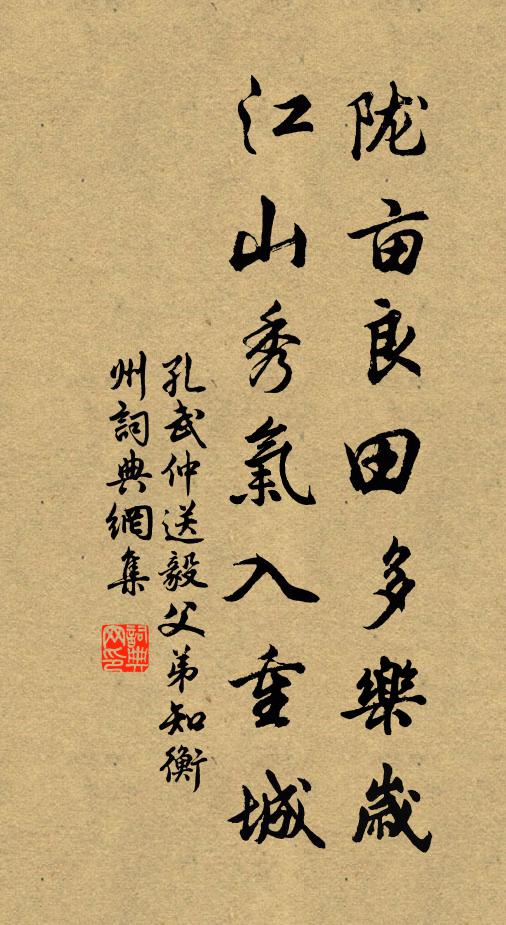 陇亩良田多樂歲
江山秀氣入重城
孔武仲送毅父弟知衡
州詞典網集
詞典
网印